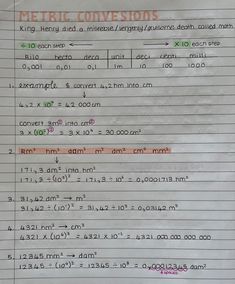 METRIC CONVESIONS
King Henry died a miserble/ death called math
÷ 10 each step ← → × 10 each step
Kilo hecto deca unit deci centi milli
0,001 0,01 0,1 1m 10 100 1000
1. example: convert 4,2 hm into cm
↓
4,2 × 10⁴ = 42 000 cm
convert 3m into cm
3 × (10²) = 3 × 10⁴ = 30 000 cm²
2. km³ hm³ dam³ m³ dm³ cm³ mm³
↓
171,3 dm² into hm²
171,3 ÷ (10³)² = 171,3 ÷ 10⁶ = 0,0001713 hm²
3. 31,42 dm³ → m³
31,42 ÷ (10¹)³ = 31,42 ÷ 10³ = 0,03142 m³
4. 4321 hm³ → cm³
4321 × (10⁴)³ = 4321 × 10¹² = 4321 000 000 000 000
5. 12345 mm² → dam²
12345 ÷ (10⁴)² = 12345 ÷ 10⁸ = 0,00012345 dam²